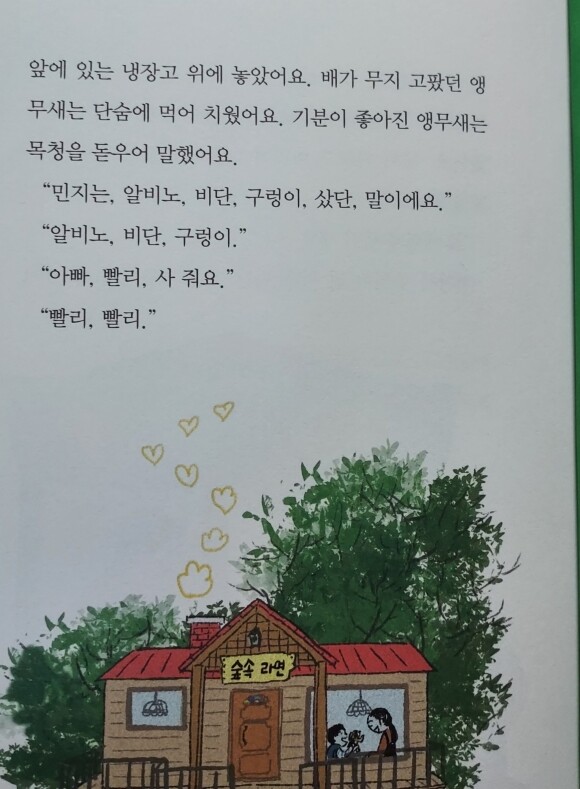 앞에 있는 냉장고 위에 놓았어요. 배가 무지 고팠던 앵
무새는 단숨에 먹어 치웠어요. 기분이 좋아진 앵무새는
목청을 돋우어 말했어요.
“민지는, 알비노, 비단, 구렁이, 샀단, 말이에요.”
“알비노, 비단, 구렁이.”
“아빠, 빨리, 사 줘요.”
“빨리, 빨리.”
숲속 라면